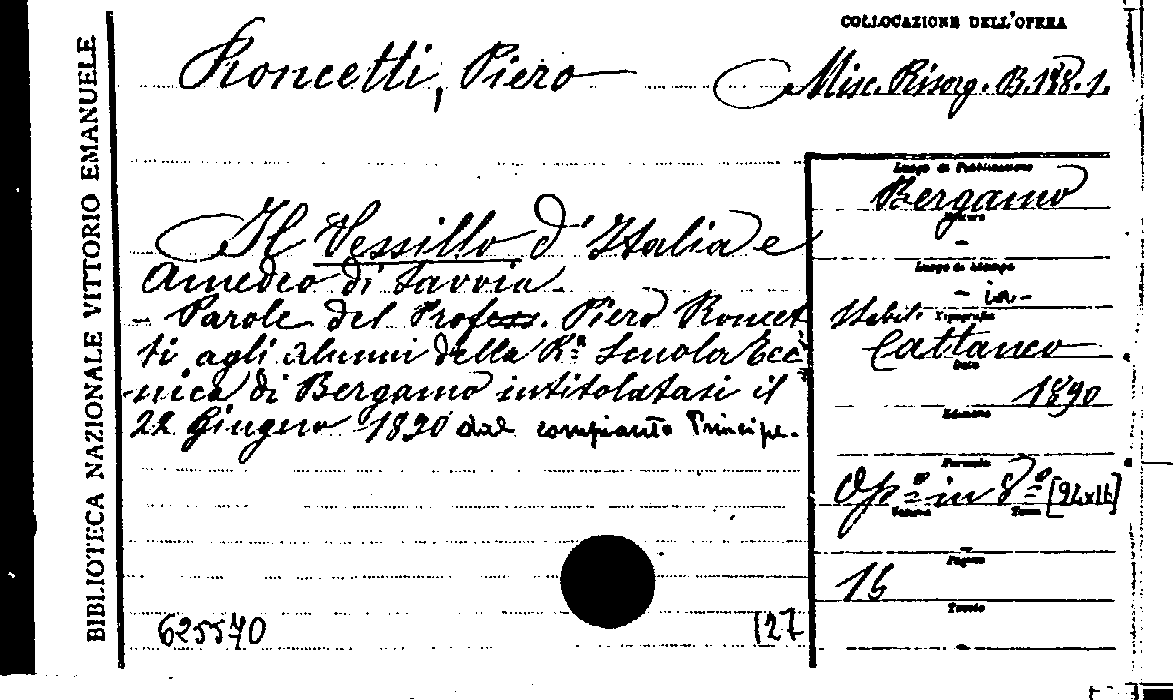 COLLOCAZIONE DELL'OPERA
Roncetti, Piero
Misc. Risorg. B. 188. 1.
BIBLIOTECA NAZIONALE VITTORIO EMANUELE
Il Vessillo d'Italia e
Amedeo di Savoia.
- Parole del Profess. Piero Roncet
ti agli alunni della R.ª Scuola Tec
nica di Bergamo intitolatasi il
22 Giugno 1890 dal compianto Principe.
625570
127
Luogo di Pubblicazione
Bergamo
Luogo di stampa
- in -
Tipografia
Stabil.
Cattaneo
Data
1890
Formato
Op.º in 8.º [24x16]
Volume
Tomo
Pagine
16